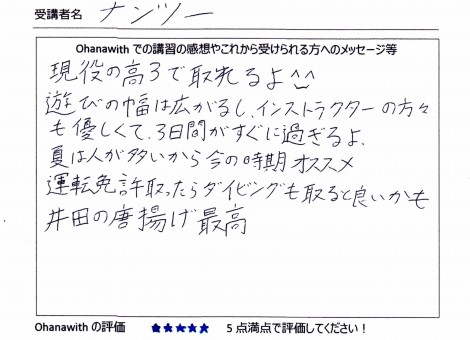 受講者名 ナンツー
Ohanawith での講習の感想やこれから受けられる方へのメッセージ等
現役の高3で取れるよ^^
遊びの幅は広がるし、インストラクターの方々
も優しくて、3日間がすぐに過ぎるよ、
夏は人が多いから今の時期オススメ
運転免許取ったらダイビングも取ると良いかも
井田の唐揚げ最高
Ohanawith の評価 ★★★★★ 5 点満点で評価してください！